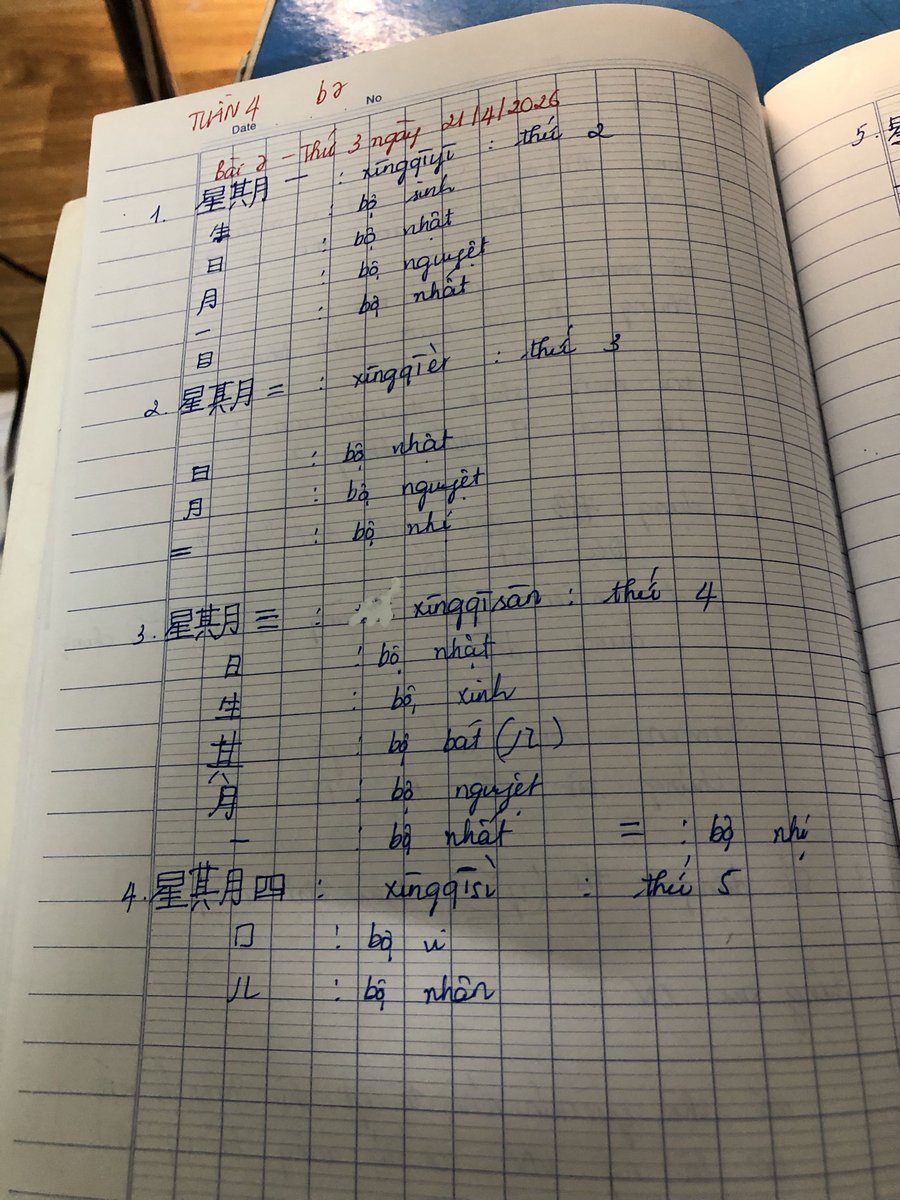 TUẦN 4 b2
Date No
Bài 2 - Thứ 3 ngày 21/4/2026
1. 星其月一 : xīngqīyī : thứ 2
生 : bộ sinh
日 : bộ nhật
月 : bộ nguyệt
一 : bộ nhất
目
2. 星其月二 : xīngqīèr : thứ 3
日 : bộ nhật
月 : bộ nguyệt
二 : bộ nhị
3. 星其月三 : xīngqīsān : thứ 4
日 : bộ nhật
生 : bộ xinh
其 : bộ bát (八)
月 : bộ nguyệt
一 : bộ nhất 二 : bộ nhị
4. 星其月四 : xīngqīsì : thứ 5
口 : bộ vi
儿 : bộ nhân
5.